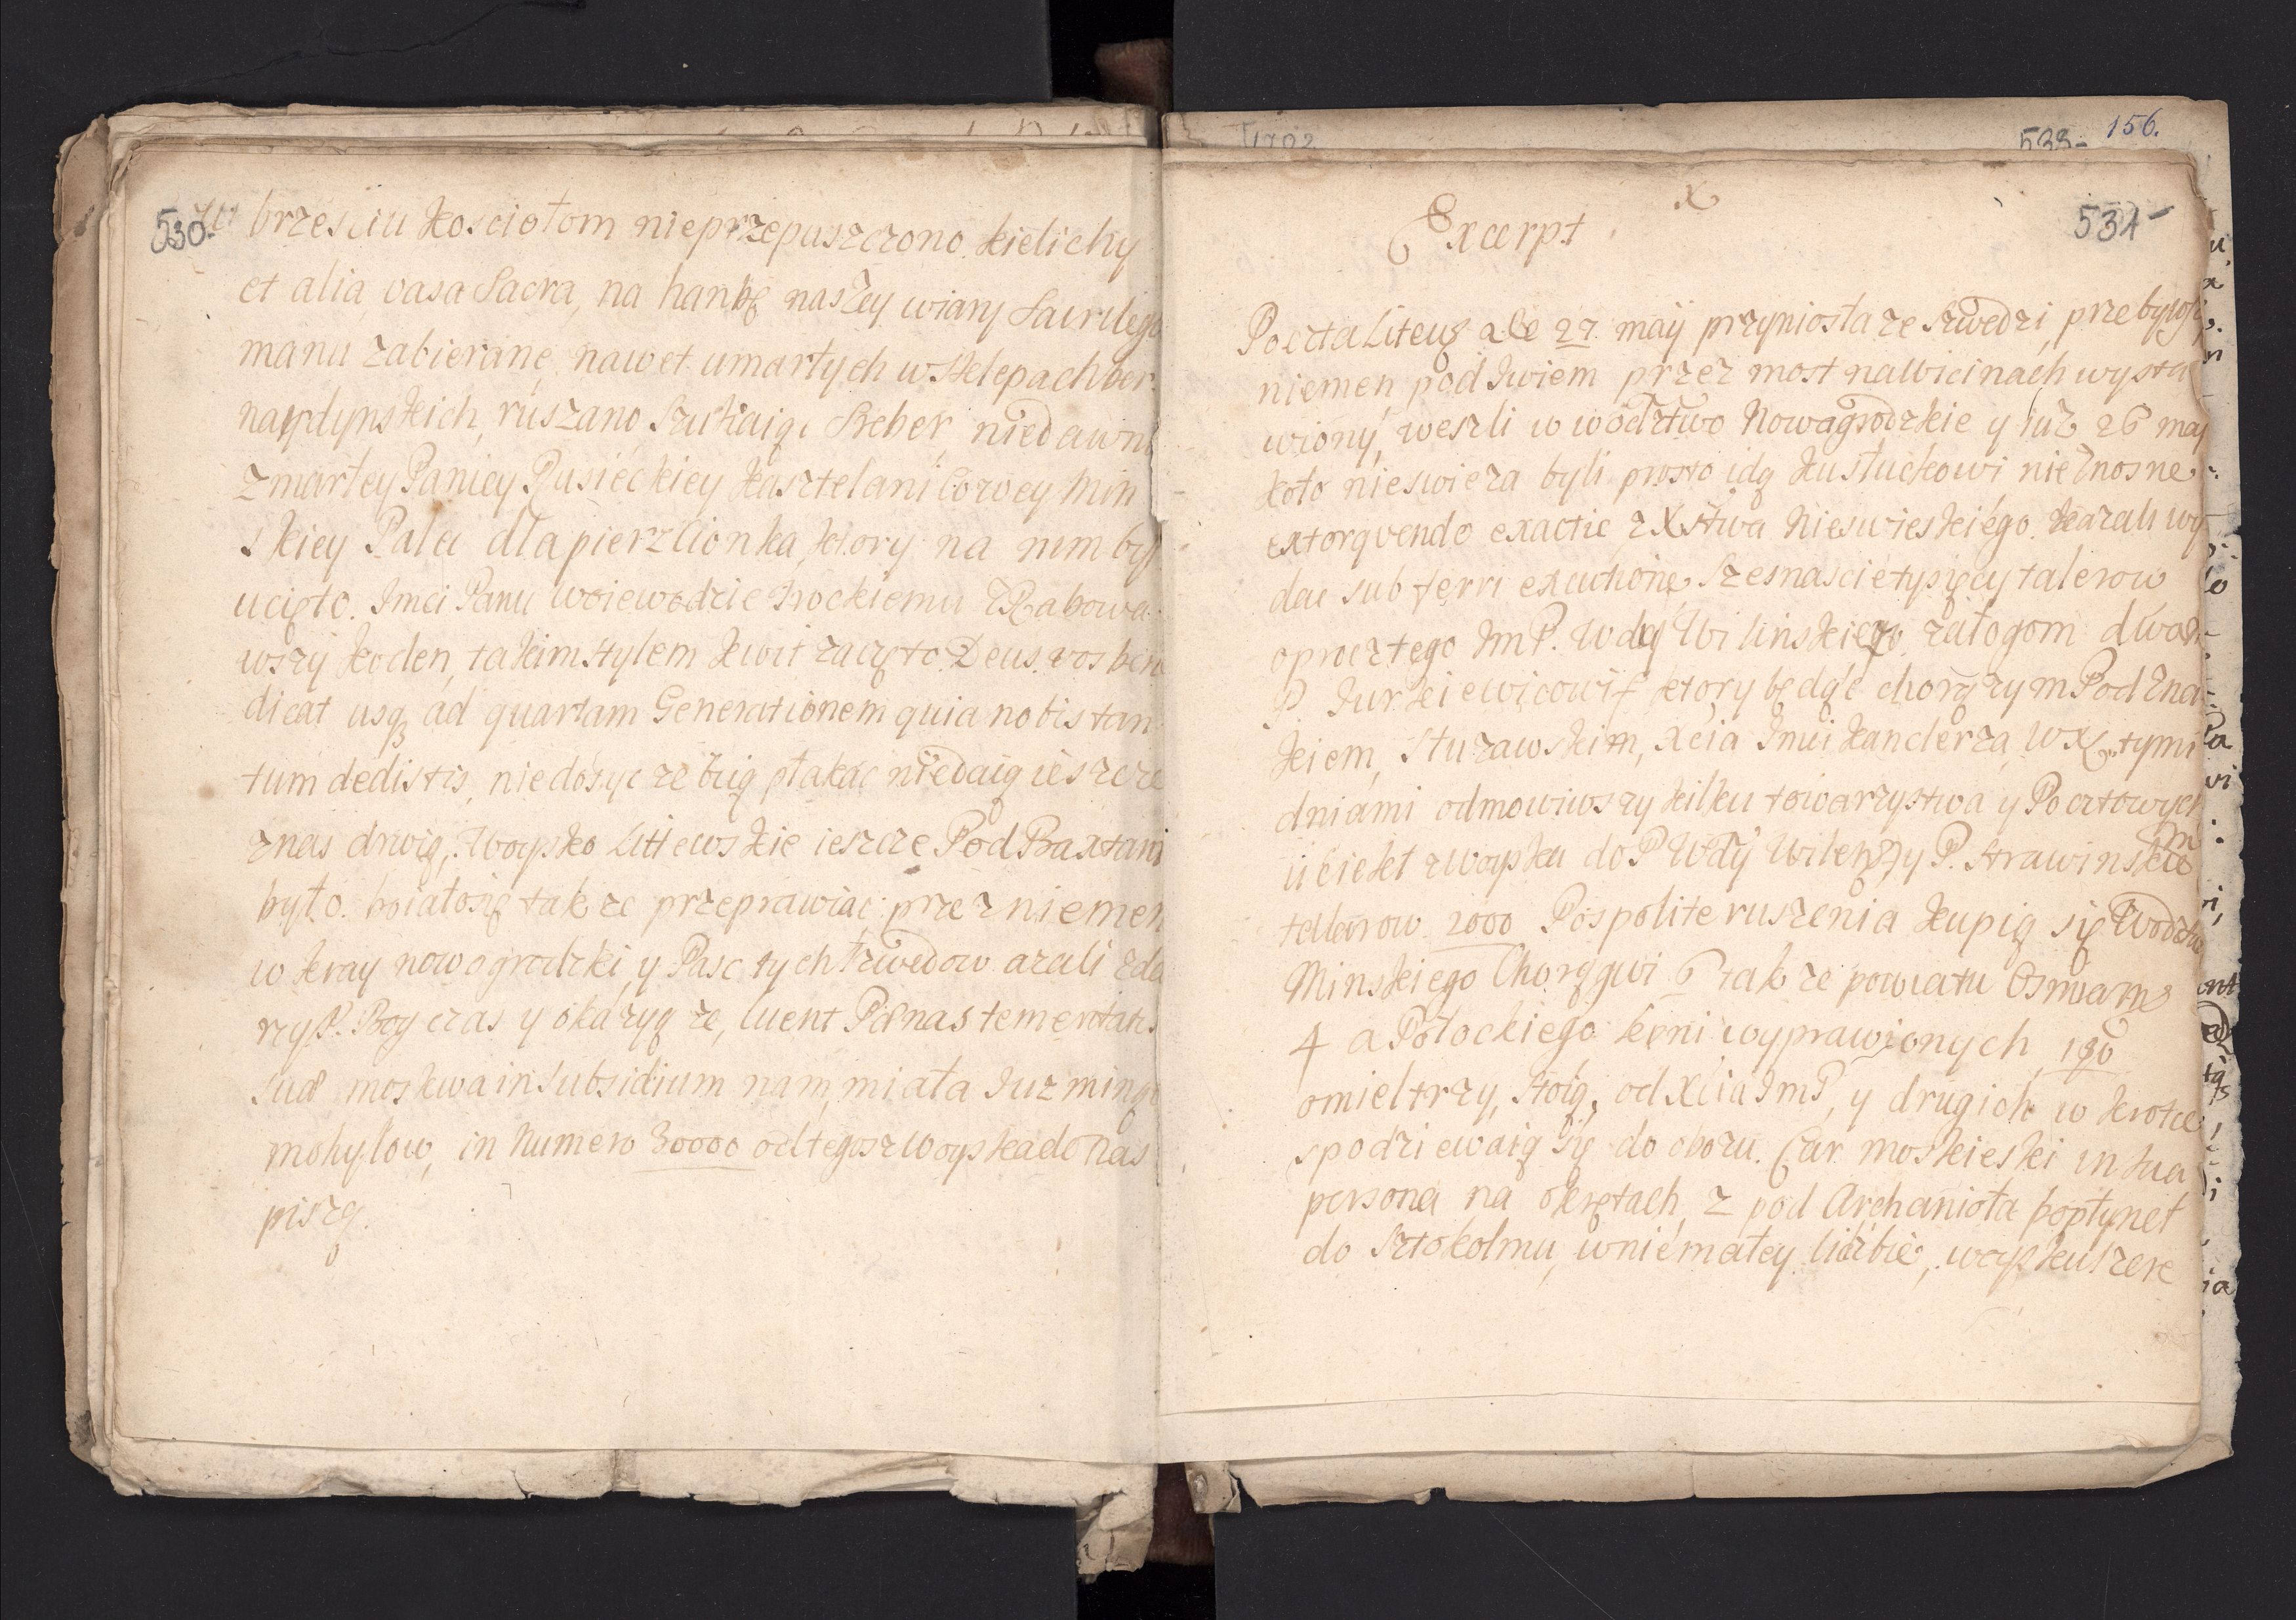 530.
W brzesciu kosciołom nieprzepuszczono kielichy
et alia vasa Sacra, na hanbę naszey wiary Sacrilega
manu zabierane, nawet umarłych w sklepach ber
nardynskich, ruszano szukaiąc Sreber, niedawno
zmarłey Paniey Rusieckiey kasztelani Cowey Min
skiey Palec dla pierzcionka, ktory na nim był
ucięto. Imci Panu woiewodzie Trockiemu zRabowa
wszy koden, takim stylem kwit zaczęto. Deus vos bene
dicat usq3 ad quartam Generationem quia nobis tan
tum dedistis, niedosyc ze biią płakac niedaią ieszcze
znas drwią, Woysko Littewskie ieszcze Pod Baxtami
było. boiałosię także przeprawiac przez niemen
w kray nowogrodzki, y Pasc tych Szwedow azali zda
rzy P. Bog czas y okazyą ze, luent Pænas temeritatis
suæ moskwa in Subsidium nam, miała Iuz minąc
mohylow, in Numero 30000 od tegosz woyska do Nas
piszą.
1702
538- 156.
x
531-
Excerpt
Poczta Litews: ale 27. maij przyniosła ze szwedzi, przebywszy
niemen pod Iwiem przez most na wicinach wysta
wiony, weszli w wodztwo Nowagrodzkie y iuż 26 maij
koło nieswieza byli prosto idą ku słuckowi nieznosne
extorqvendo exactie z Xstwa Nieswieskiego. kazali wy
dac sub ferri excutione Szesnascie tysięcy talerow
oprocz tego ImP. Wdy Wilinskiego załogom dwom
P Iurkiewicowi ktory będąc chorązym Pod zna
kiem, Sturawskim, Xcia Imci kanclerza, WX. tymi
dniami odmowiwszy kilku towarzystwa y Pocztowych
uciekł zwoyska do P Wdy Wilen: y P. Strawinskie
m
tallarow 2000 Pospolite ruszenia kupią się Wodztw
Minskiego Chorągwi 6 tak ze powiatu Osmians
4 a Połockiego koni wyprawionych 180
omiel trzy, stoią, od Xcia ImP, y drugich w krotce
spodziewaią się do obozu. Car moskieski in sua
persona na okrętach, z pod Archanioła popłyneł
do Sztokolmu, w niemałey liczbie, woysku szere